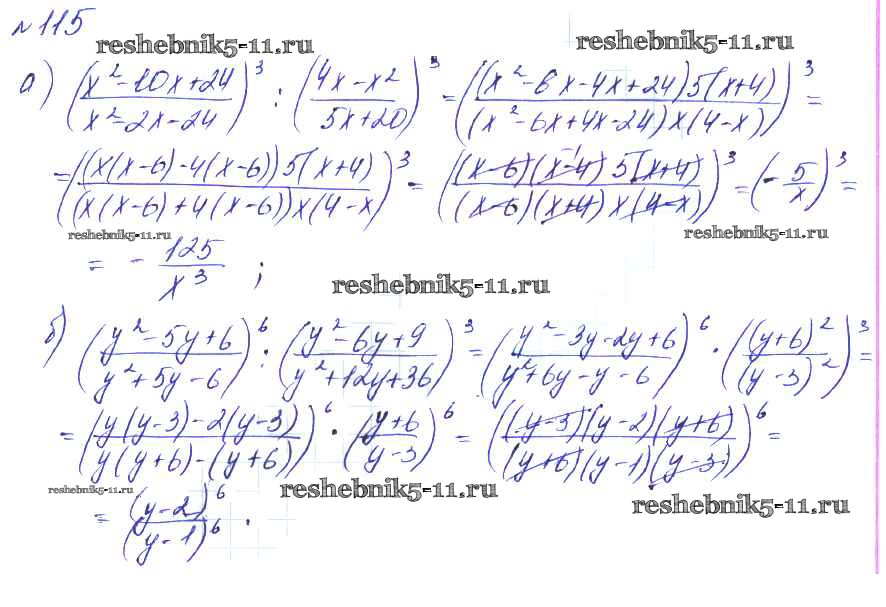 №115
reshebnik5-11.ru reshebnik5-11.ru
а) ((x²-10x+24)/(x²-2x-24))³ : ((4x-x²)/(5x+20))³ = (((x²-6x-4x+24)5(x+4))/((x²-6x+4x-24)x(4-x)))³ =
= (((x(x-6)-4(x-6))5(x+4))/((x(x-6)+4(x-6))x(4-x)))³ = (((x-6)(x-4)⁻¹5(x+4))/((x-6)(x+4)x(4-x)))³ = (-5/x)³ =
reshebnik5-11.ru reshebnik5-11.ru
= -125/x³ ;
reshebnik5-11.ru
б) ((y²-5y+6)/(y²+5y-6))⁶ : ((y²-6y+9)/(y²+12y+36))³ = ((y²-3y-2y+6)/(y²+6y-y-6))⁶ · ((y+6)²/(y-3)²)³ =
= ((y(y-3)-2(y-3))/(y(y+6)-(y+6)))⁶ · ((y+6)/(y-3))⁶ = (((y-3)(y-2)(y+6))/((y+6)(y-1)(y-3)))⁶ =
reshebnik5-11.ru reshebnik5-11.ru reshebnik5-11.ru
= (y-2)⁶/(y-1)⁶ .